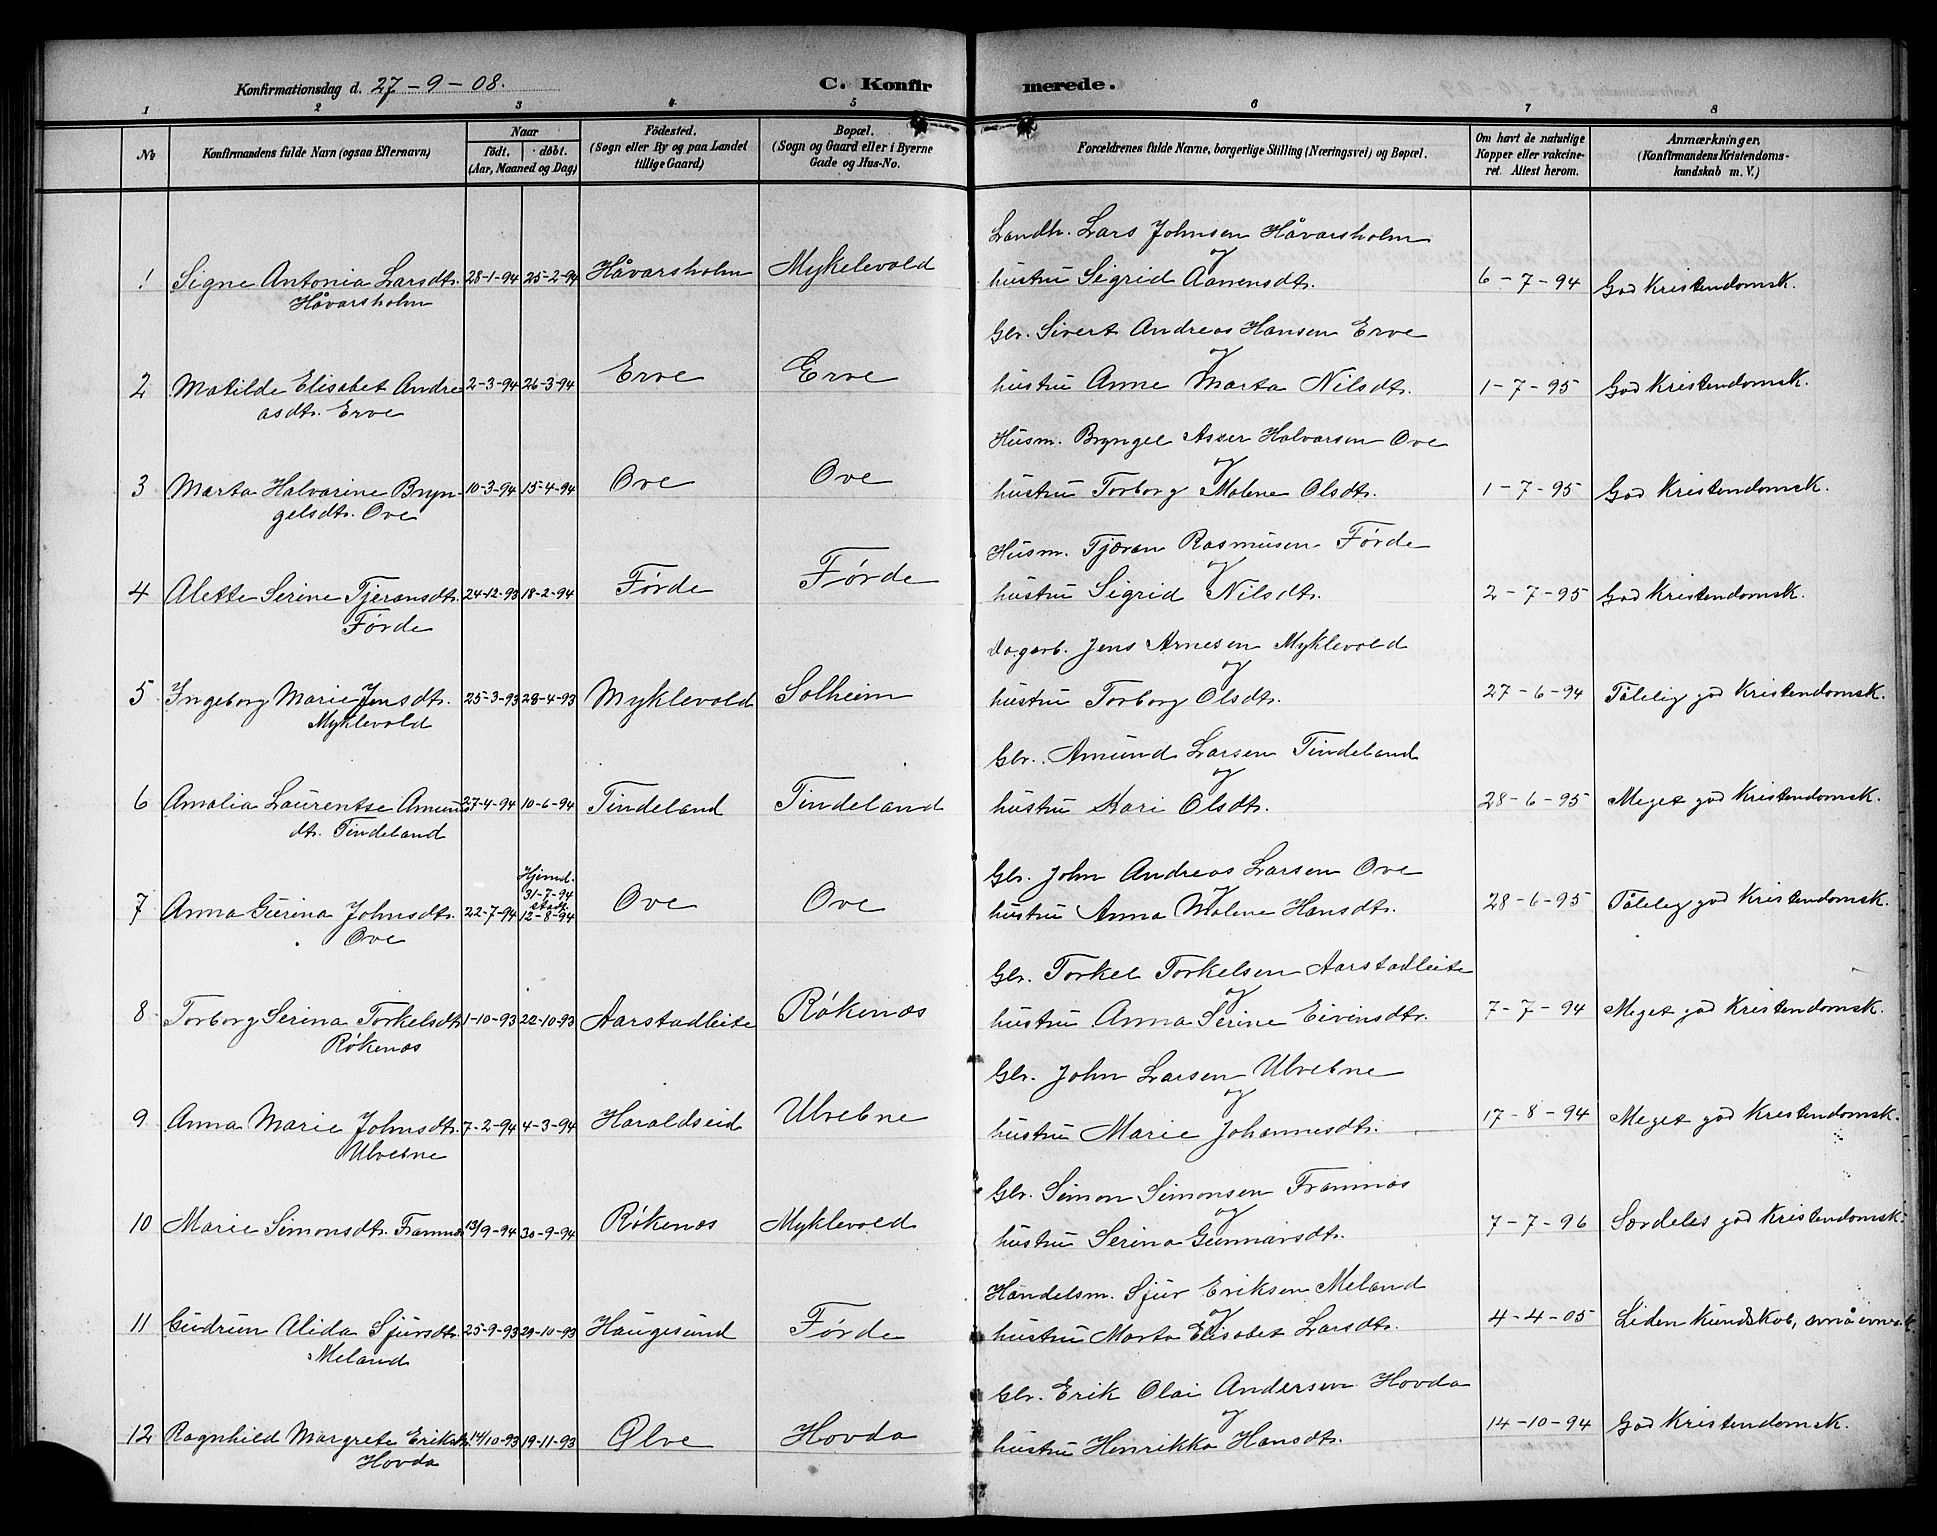 Konfirmationsdag d. 27-9-08. C. Konfirmerede.
1 2 3 4 5 6 7 8
No
Konfirmandens fulde Navn (ogsaa Efternavn)
Naar
födt. döbt.
(Aar, Maaned og Dag)
Födested.
(Sogn eller By og paa Landet
tillige Gaard)
Bopæl.
(Sogn og Gaard eller i Byerne
Gade og Hus-No.
Forældrenes fulde Navne, borgerlige Stilling (Næringsvei) og Bopæl.
Om havt de naturlige
Kopper eller vakcine-
ret. Attest herom.
Anmærkninger.
(Konfirmandens Kristendoms-
kundskab m. V.)
Landh. Lars Johnsen Håvarsholm
og
1 Signe Antonia Larsdtr. 28-1-94 25-2-94 Håvarsholm Mykelevold hustru Sigrid Aanensdtr. 6-7-94 God Kristendomsk.
Håvarsholm
Gbr. Sivert Andreas Hansen Erve
og
2 Matilde Elisabet Andre 2-3-94 26-3-94 Erve Erve hustru Anne Marta Nilsdtr. 1-7-95 God Kristendomsk.
asdtr. Erve
Husm. Bryngel Asser Halvarsen Ove
og
3 Marta Halvarine Bryn- 10-3-94 15-4-94 Ove Ove hustru Torborg Malene Olsdtr. 1-7-95 God Kristendomsk.
gelsdtr. Ove
Husm. Tjæran Rasmusen Førde
og
4 Alette Serine Tjeransdtr. 24-12-93 18-2-94 Førde Førde hustru Sigrid Nilsdtr. 2-7-95 God Kristendomsk.
Førde
Dagarb. Jens Arnesen Myklevold
og
5 Ingeborg Marie Jensdtr. 25-3-93 28-4-93 Myklevold Solheim hustru Torborg Olsdtr. 27-6-94 Tålelig god Kristendomsk.
Myklevold
Gbr. Amund Larsen Tindeland
og
6 Amalia Laurentse Amunds 27-4-94 10-6-94 Tindeland Tindeland hustru Kari Olsdtr. 28-6-95 Meget god Kristendomsk.
dtr. Tindeland
Hjemd.
31-7-94
stadf.
Gbr. John Andreas Larsen Ove
og
7 Anna Gurina Johnsdtr. 22-7-94 12-8-94 Ove Ove hustru Anna Malene Hansdtr. 28-6-95 Tålelig god Kristendomsk.
Ove
Gbr. Torkel Torkelsen Aarstadleite
og
8 Torborg Serina Torkelsdtr. 1-10-93 22-10-93 Aarstadleite Røkenæs hustru Anna Serine Eivinsdtr. 7-7-94 Meget god Kristendomsk.
Røkenæs
Gbr. John Larsen Ulvebne
og
9 Anna Marie Johnsdtr. 7-2-94 4-3-94 Haraldseid Ulvebne hustru Marie Johannesdtr. 17-8-94 Meget god Kristendomsk.
Ulvebne
Gbr. Simon Simonsen Framnæs
og
10 Marie Simonsdtr. Framnæs 13/9-94 30-9-94 Røkenæs Myklevold hustru Serina Gunnarsdtr. 7-7-96 Særdeles god Kristendomsk.
Handelsm. Sjur Eriksen Meland
og
11 Gudrun Alida Sjursdtr. 25-9-93 29-10-93 Haugesund Førde hustru Marta Elisabet Larsdtr. 4-4-05 Liden Kundskab, små
Meland
Gbr. Erik Olai Andersen Hovda
og
12 Ragnhild Margrete Eriksdtr. 14/10-93 19-11-93 Ølve Hovda hustru Henrikka Hansdtr. 14-10-94 God Kristendomsk.
Hovda